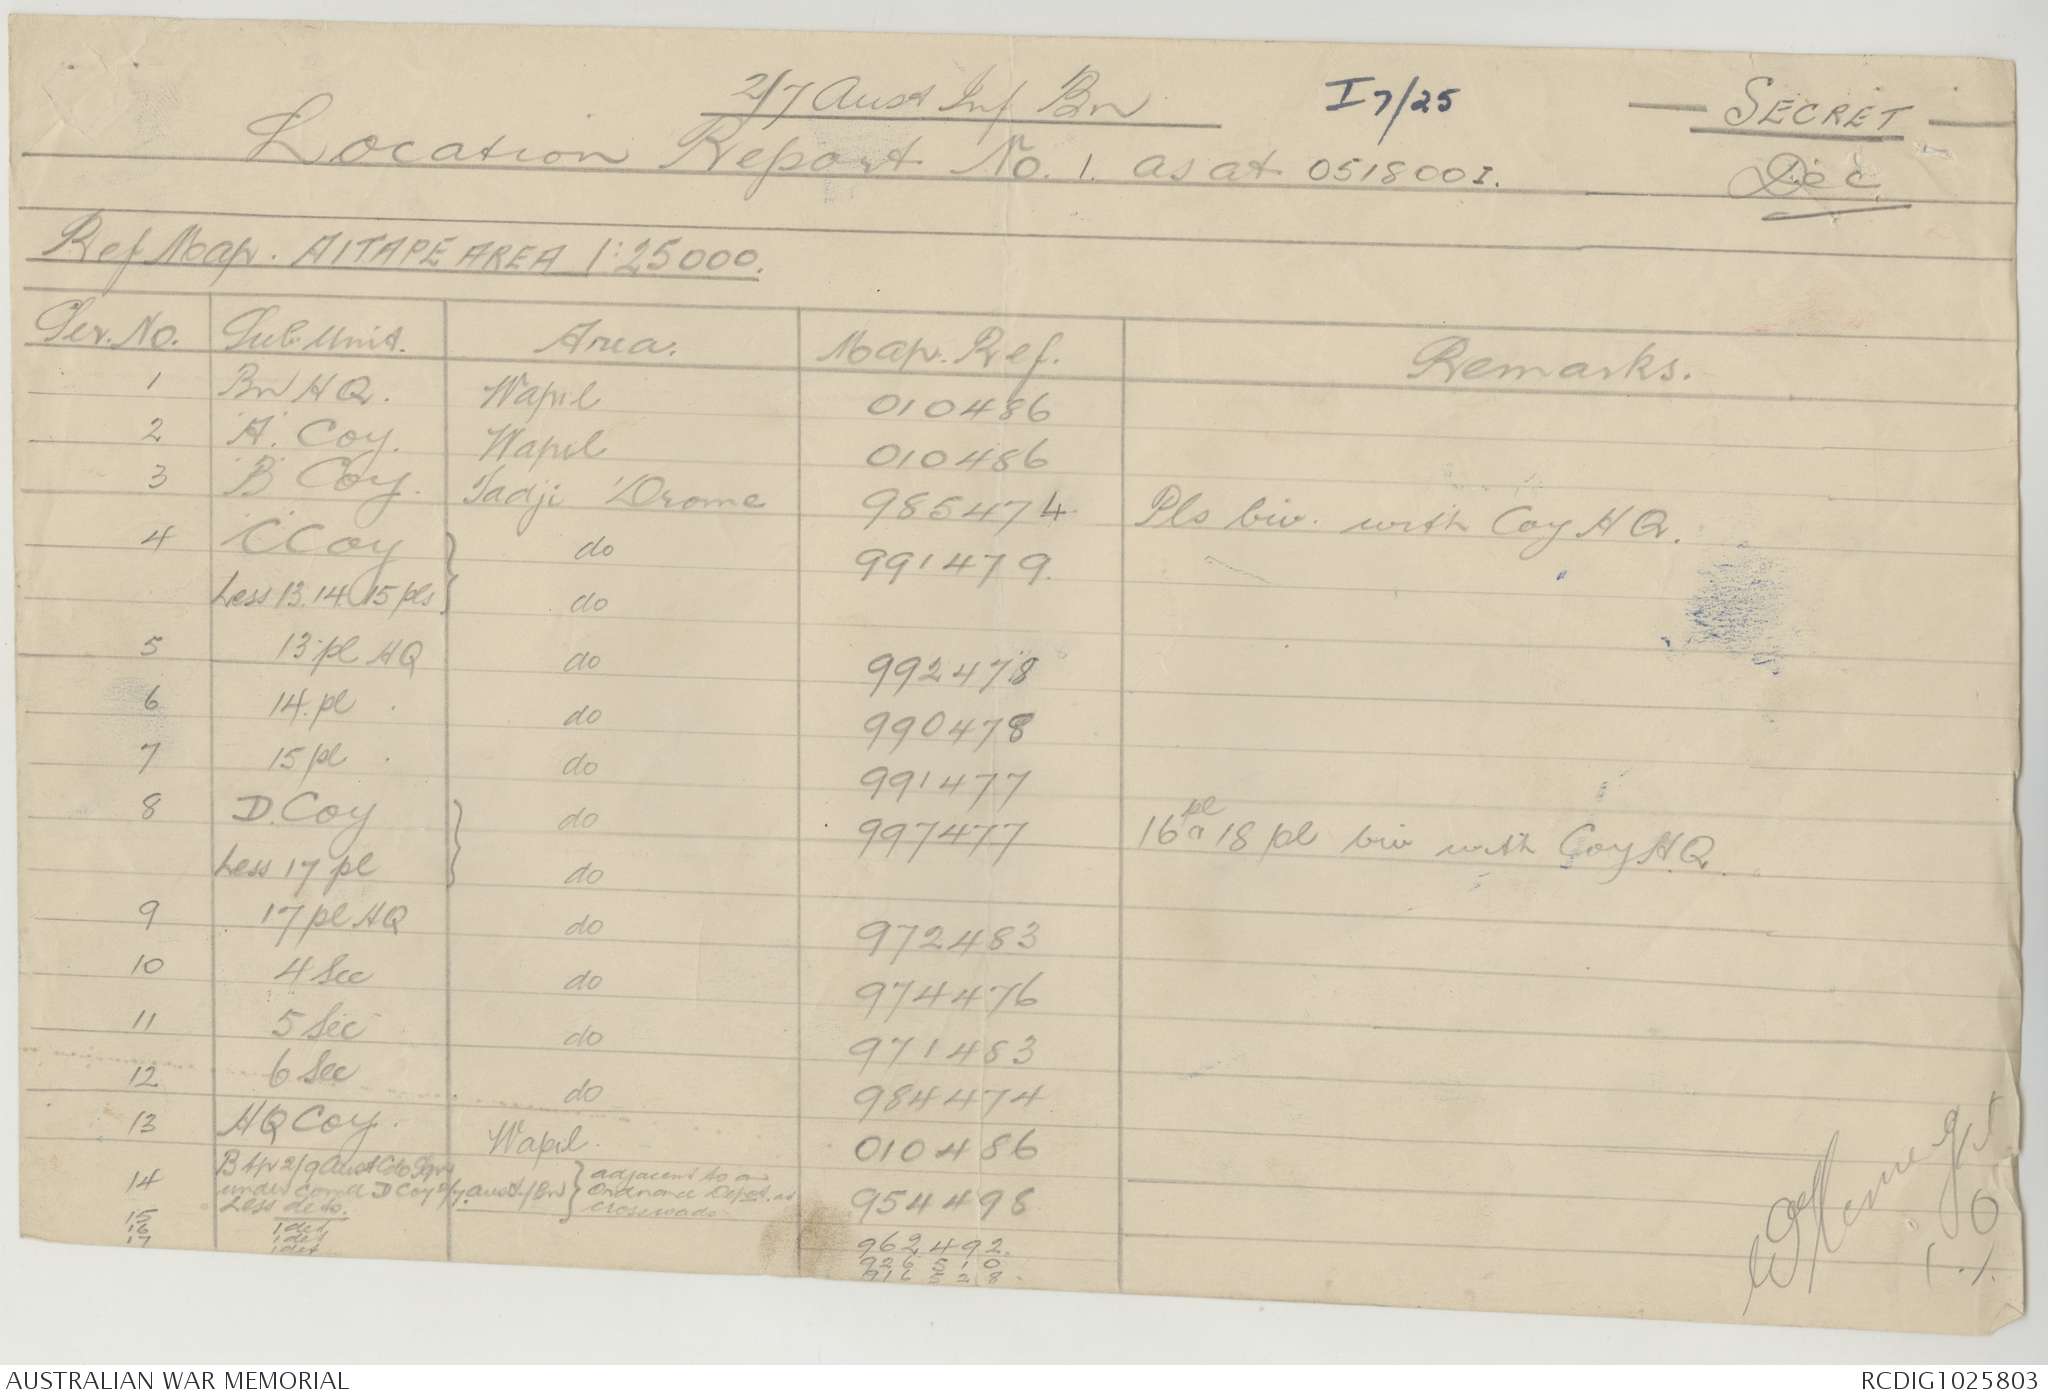 2/7 Aust Inf Bn
I 7/25
SECRET
Location Report No. 1. as at 051800I.
Dec.
Ref Map. AITAPE AREA 1:25000.
Ser. No. Sub Unit. Area. Map. Ref. Remarks.
1 Bn HQ. Wapil 010486
2 "A" Coy. Wapil 010486
3 "B" Coy. Tadji 'Drome 985474 Pls biv. with Coy HQ.
4 "C" Coy } do 991479.
Less 13.14.15 pls } do
5 13 pl HQ do 992478
6 14. pl . do 990478
7 15 pl . do 991477
8 D. Coy } do 997477 16 pl a 18 pl biv with Coy HQ.
Less 17 pl } do
9 17 pl HQ do 972483
10 4 Sec do 974476
11 5 Sec do 971483
12 6 Sec do 984474
13 HQ Coy. Wapil. 010486
14 B Tp 2/9 Aust Cdo Sqn
under comd D Coy 2/7. Aust / Bn } adjacent to an
Less dets. Ordnance Depot. at
crossroads 954498
15 1 det 962492.
16 1 det 926510
17 1 det 916528.